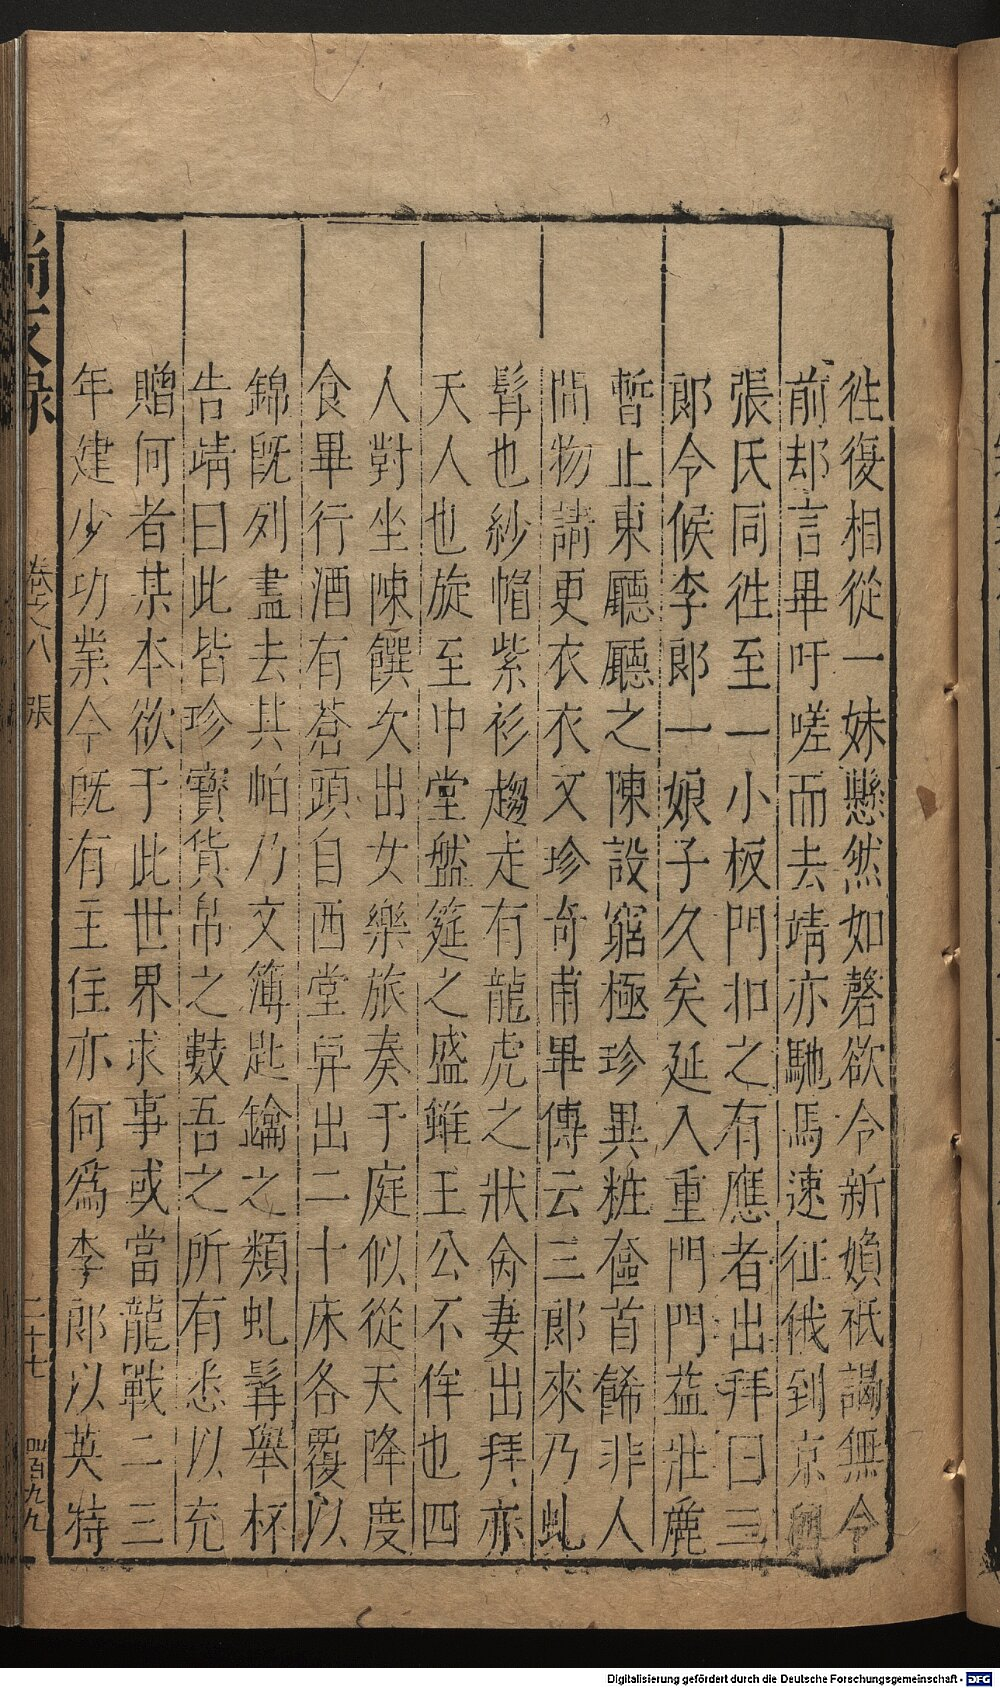 往復相從一妹懸然如磬欲令新婦祇謁無令
前却言畢吁嗟而去靖亦馳馬速征俄到京與
張氏同往至一小板門扣之有應者出拜曰三
郎令候李郎一娘子久矣延入重門門益壯麗
暫止東廳廳之陳設窮極珍異粧奩首餙非人
間物請更衣衣文珍奇甫畢傳云三郎來乃虬
髯也紗帽紫衫趨走有龍虎之狀命妻出拜亦
天人也旋至中堂盤筵之盛雖王公不侔也四
人對坐陳饌次出女樂旅奏于庭似從天降度
食畢行酒有蒼頭自西堂舁出二十床各覆以
錦既列盡去其帕乃文簿匙鑰之類虬髯舉杯
告靖曰此皆珍寶貨帛之數吾之所有悉以充
贈何者某本欲于此世界求事或當龍戰二三
年建少功業今既有主住亦何為李郎以英特
尚友錄 卷之八 張 二十七 四百九九
Digitalisierung gefördert durch die Deutsche Forschungsgemeinschaft - DFG